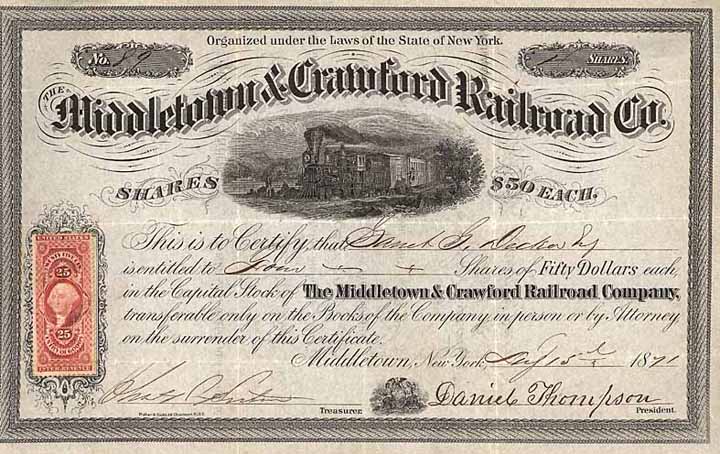 Organized under the Laws of the State of New York.
No. 89 SHARES.
THE Middletown & Crawford Railroad Co.
SHARES $50 EACH.
This is to Certify, that
is entitled to Four Shares of Fifty Dollars each,
in the Capital Stock of The Middletown & Crawford Railroad Company,
transferable only on the Books of the Company in person or by Attorney
on the surrender of this Certificate.
Middletown, New York, 15 1871
UNITED STATES
25 25
INTER. REVENUE
Treasurer. Daniel Thompson President.